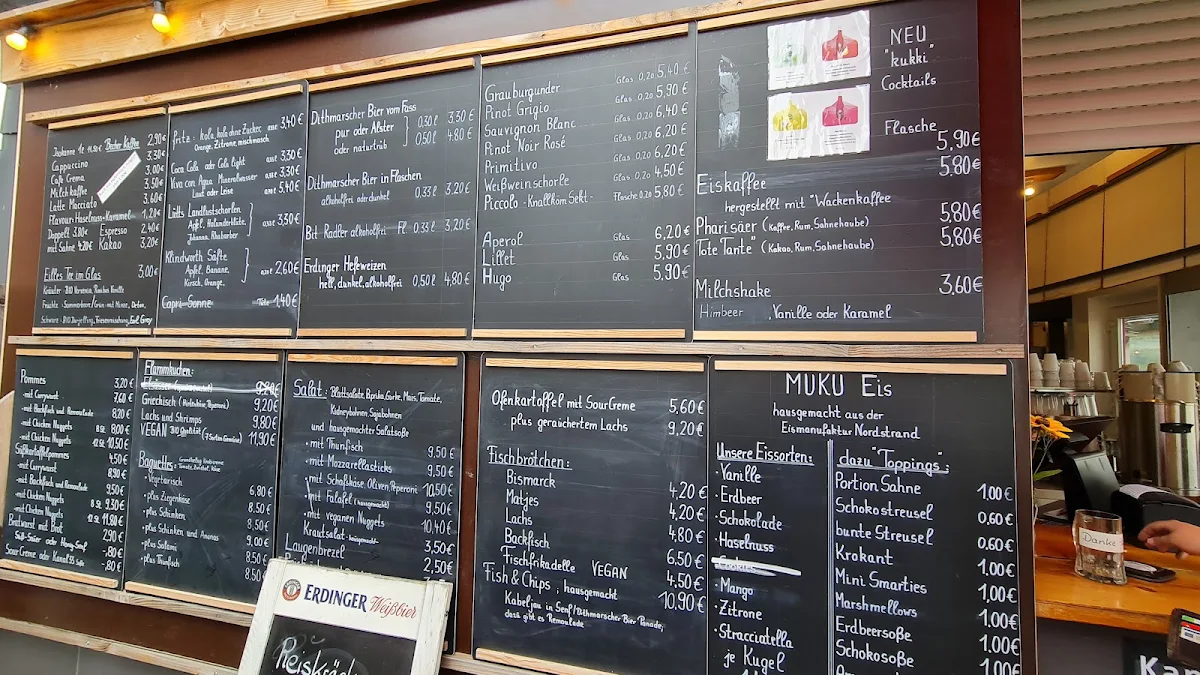 Becher Kaffee 2,90€
Cappuccino 3,30€
Cafe Crema 3,00€
Milch kaffee 3,50€
Latte Macciato 3,60€
Flavour: Haselnuss-Karamel 1,20€
Doppelt 3.80€ Espresso 2,40€
mit Sahne 4.20€ Kakao 3,20€
Eilles Tee im Glas 3,00€
fritz- kola, kola ohne Zucker 3,40€
Orange, Zitrone, mischmasch
Coca Cola oder Cola light 3,30€
Viva con Agua Mineralwasser 3,30€
Laut oder Leise 5,40€
Lütts Landlustschorlen
Apfel, Holunderblüte, 3,30€
Johanna, Rhabarber
Klindworth Säfte
Apfel, Banane, 2,60€
Kirsch, Orange,
Capri-Sonne 1,40€
Dithmarscher Bier vom Fass
pur oder Alster 0,30l 3,30€
oder naturtrüb 0,50l 4.80€
Dithmarscher Bier in Flaschen
alkoholfrei oder dunkel 0.33l 3,20€
Bit Radler alkoholfrei Fl 0.33l 3,20€
Erdinger Hefeweizen
hell, dunkel, alkoholfrei 0,50l 4,80€
Grauburgunder Glas 0,20 5,40€
Pinot Grigio Glas 0,20 5,90€
Sauvignon Blanc Glas 0,20 6,40€
Pinot Noir Rosé Glas 0,20 6,20€
Primitivo Glas 0,20 6,20€
Weißweinschorle Glas 0,20 4,50€
Piccolo - Knallkom Sekt - Flasche 0,20 5,80€
Aperol Glas 6,20€
Lillet Glas 5,90€
Hugo Glas 5,90€
NEU
"kukki"
Cocktails
Flasche 5,90€
Eiskaffee 5.80€
hergestellt mit "Wackenkaffee
Pharisäer (Kaffee, Rum, Sahnehaube) 5,80€
"Tote Tante" (Kakao, Rum, Sahnehaube) 5,80€
Milchshake 3,60€
Himbeer , Vanille oder Karamel
Pommes 3,20€
-mit Currywurst 7.60€
-mit Backfisch und Remoulade 8.20€
-mit Chicken Nuggets 8 St. 8.00€
-mit Chicken Nuggets 12 St. 10,50€
Süßkartoffelpommes 4,50€
-mit Currywurst 8,90€
-mit Backfisch und Remoulade 9.50€
-mit Chicken Nuggets 8 St. 9.30€
-mit Chicken Nuggets 12 St. 11,80€
Bratwurst mit Brot 2,90€
Süß-Sauer oder Honig-Senf -.80€
Flammkuchen:
Elsässer 9,20€
Griechisch 9,20€
Lachs und Shrimps 9,80€
VEGAN 11,90€
Baguettes:
·Vegetarisch 6,80€
·plus Ziegenkäse 8,50€
·plus Schinken 8,50€
·plus Schinken und Ananas 9,00€
·plus Salami 8,50€
·plus Thunfisch 8,50€
Salat: Blattsalate, Paprika, Gurke, Mais, Tomate,
Kidneybohnen Sojabohnen
und hausgemachter Salatsoße
·mit Thunfisch 9,50€
·mit Mozzarellasticks 9,50€
·mit Schafskäse, Oliven, Peperoni 10,50€
·mit Falafel (hausgemacht) 9,50€
·mit veganen Nuggets 10,40€
Krautsalat-hausgemacht- 3,50€
Laugenbrezel 2,50€
ERDINGER Weißbier
Ofenkartoffel mit SourCreme 5,60€
plus geräuchertem Lachs 9,20€
Fischbrötchen:
Bismarck 4,20€
Matjes 4,20€
Lachs 4,80€
Backfisch 6,50€
Fischfrikadelle VEGAN 4,50€
Fish & Chips, hausgemacht 10,90€
Kabeljau in Senf/Dithmarscher Bier Panade,
dazu gibt es Remoulade
MUKU Eis
hausgemacht aus der
Eismanufaktur Nordstrand
Unsere Eissorten:
·Vanille
·Erdbeer
·Schokolade
·Haselnuss
·Cookies
·Mango
·Zitrone
·Stracciatella
je Kugel
dazu "Toppings":
Portion Sahne 1.00€
Schokostreusel 0.60€
bunte Streusel 0.60€
Krokant 1.00€
Mini Smarties 1.00€
Marshmellows 1.00€
Erdbeersoße 1.00€
Schokosoße 1.00€
Danke